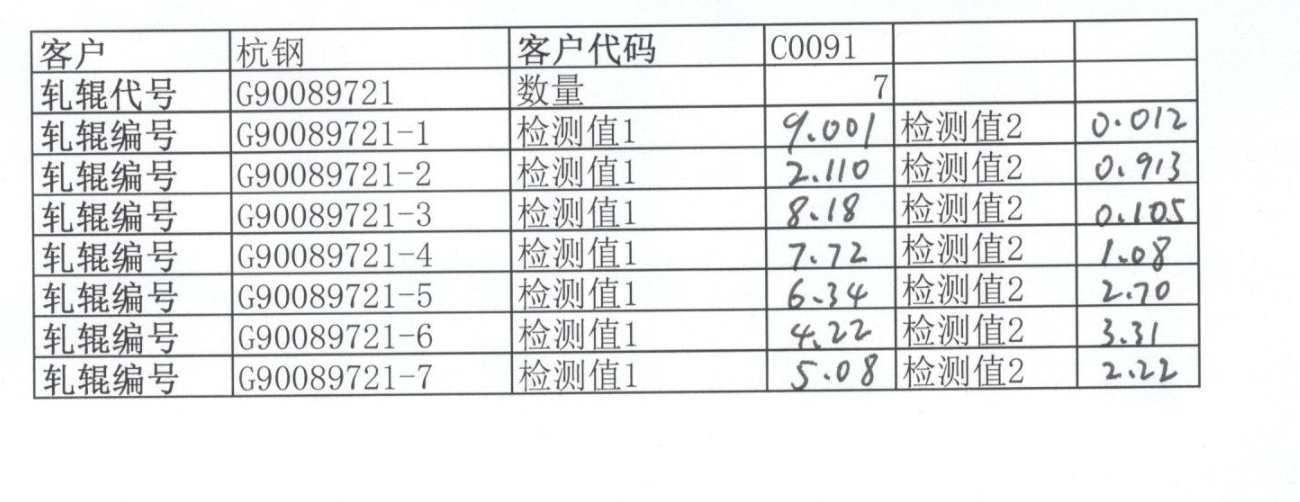 客户 杭钢 客户代码 C0091
轧辊代号 G90089721 数量 7
轧辊编号 G90089721-1 检测值1 9.001 检测值2 0.012
轧辊编号 G90089721-2 检测值1 2.110 检测值2 0.913
轧辊编号 G90089721-3 检测值1 8.18 检测值2 0.105
轧辊编号 G90089721-4 检测值1 7.72 检测值2 1.08
轧辊编号 G90089721-5 检测值1 6.34 检测值2 2.70
轧辊编号 G90089721-6 检测值1 4.22 检测值2 3.31
轧辊编号 G90089721-7 检测值1 5.08 检测值2 2.22